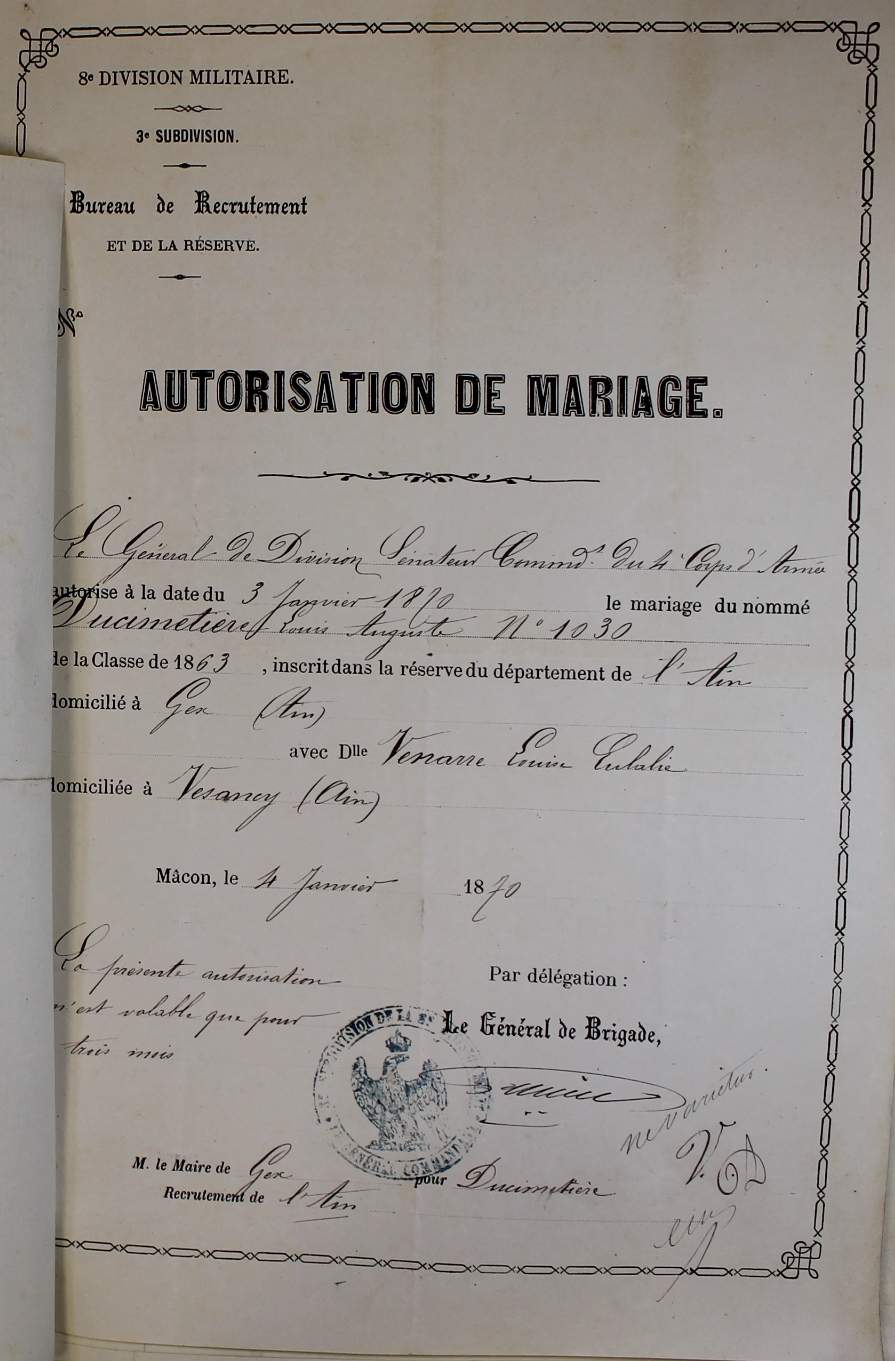 8e DIVISION MILITAIRE.
3e SUBDIVISION.
Bureau de Recrutement
ET DE LA RÉSERVE.
No
AUTORISATION DE MARIAGE.
Le Général de Division Sénateur Commdt. du 4e Corps d'Armée
autorise à la date du 3 Janvier 1870 le mariage du nommé
Ducimetière Louis Auguste No 1030
de la Classe de 1863, inscrit dans la réserve du département de l'Ain
domicilié à Gex (Ain)
avec Dlle Venarre Louise Eulalie
domiciliée à Vesancy (Ain)
Mâcon, le 4 Janvier 1870
La présente autorisation
n'est valable que pour
trois mois
Par délégation :
Le Général de Brigade,
SUBDIVISION DE LA 8e DIVISION
LE GÉNÉRAL COMMANDANT
ne varietur.
V. D
M. le Maire de Gex pour Ducimetière
Recrutement de l'Ain